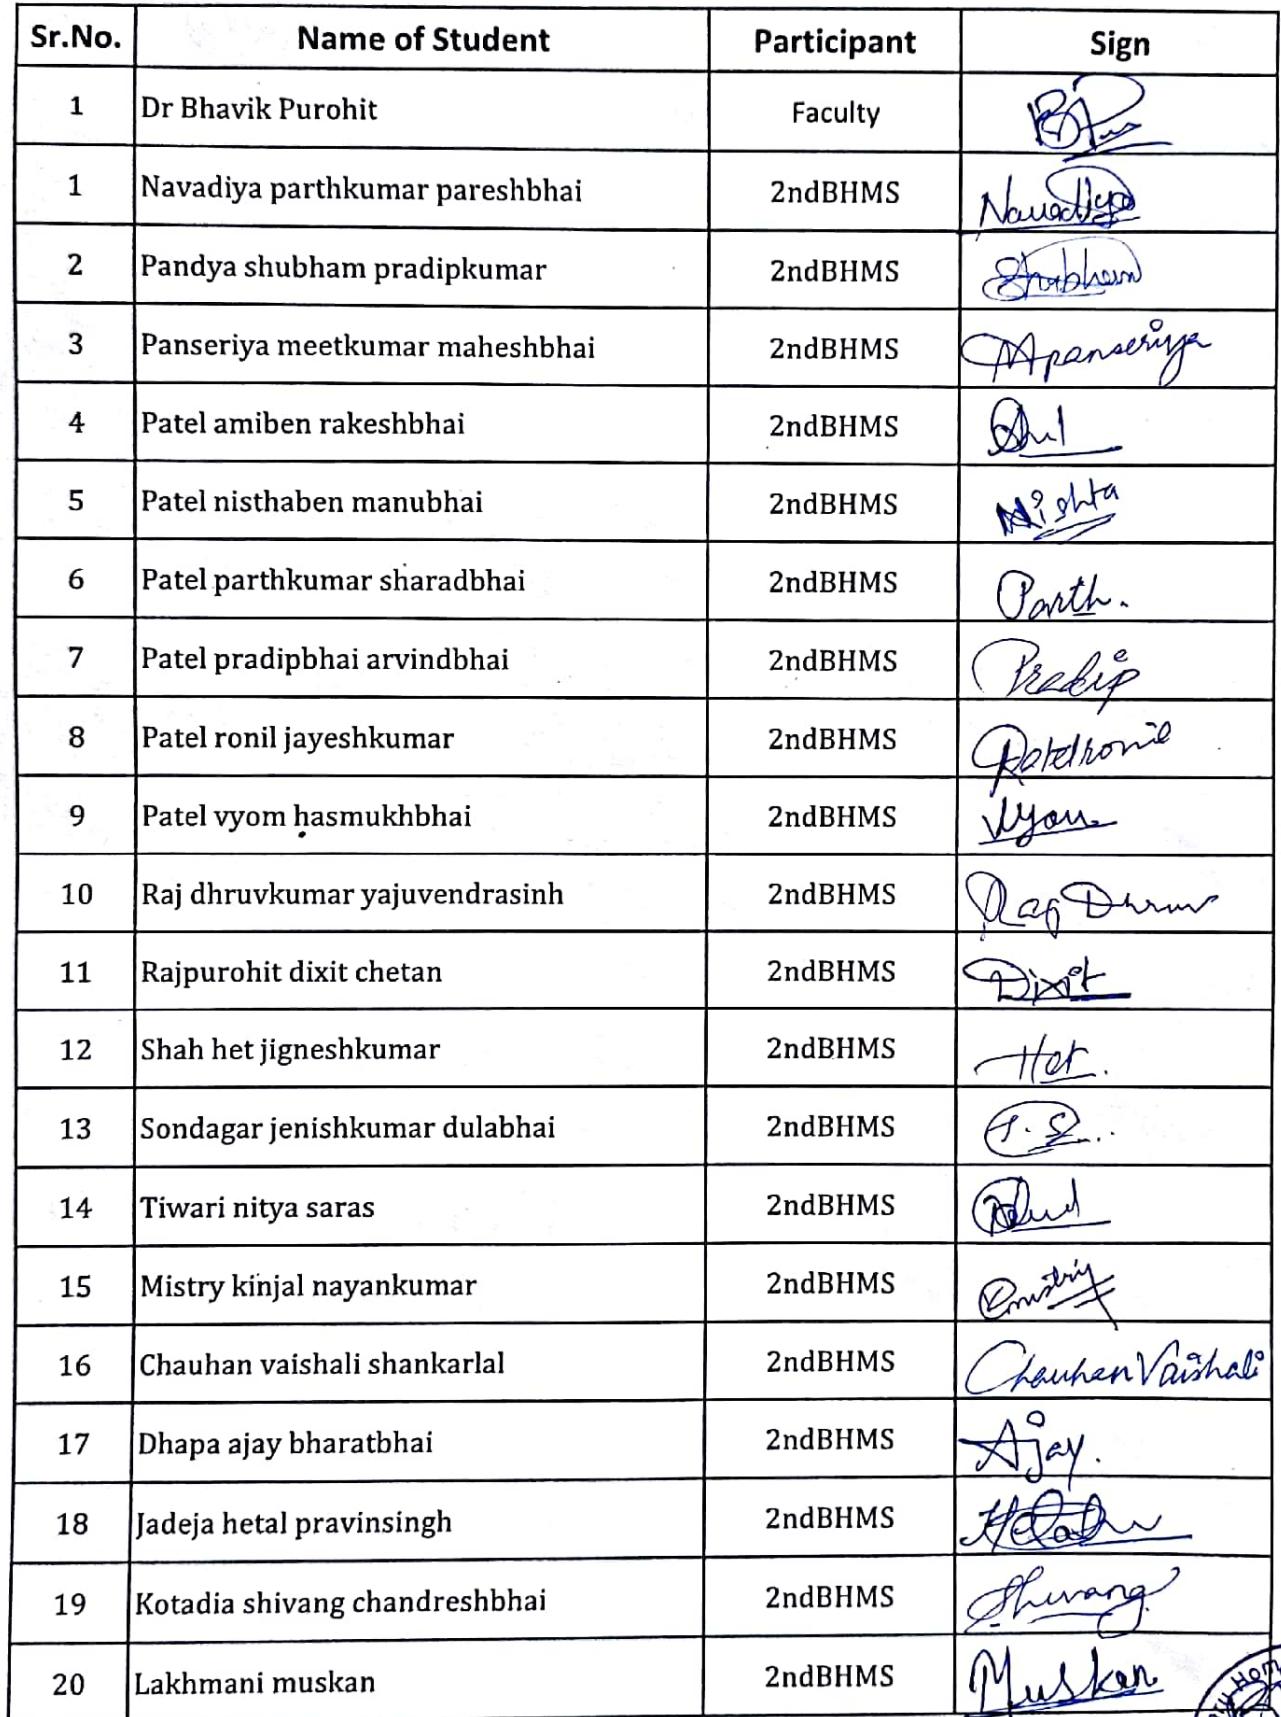 Sr.No. Name of Student Participant Sign
1 Dr Bhavik Purohit Faculty
1 Navadiya parthkumar pareshbhai 2ndBHMS Navadiya
2 Pandya shubham pradipkumar 2ndBHMS Shubham
3 Panseriya meetkumar maheshbhai 2ndBHMS Mpanseriya
4 Patel amiben rakeshbhai 2ndBHMS
5 Patel nisthaben manubhai 2ndBHMS Nishta
6 Patel parthkumar sharadbhai 2ndBHMS Parth.
7 Patel pradipbhai arvindbhai 2ndBHMS Pradip
8 Patel ronil jayeshkumar 2ndBHMS Patelronil
9 Patel vyom hasmukhbhai 2ndBHMS Vyom
10 Raj dhruvkumar yajuvendrasinh 2ndBHMS Raj Dhruv
11 Rajpurohit dixit chetan 2ndBHMS Dixit
12 Shah het jigneshkumar 2ndBHMS Het.
13 Sondagar jenishkumar dulabhai 2ndBHMS J.S...
14 Tiwari nitya saras 2ndBHMS
15 Mistry kinjal nayankumar 2ndBHMS
16 Chauhan vaishali shankarlal 2ndBHMS Chauhan Vaishali
17 Dhapa ajay bharatbhai 2ndBHMS Ajay.
18 Jadeja hetal pravinsingh 2ndBHMS
19 Kotadia shivang chandreshbhai 2ndBHMS Shivang
20 Lakhmani muskan 2ndBHMS Muskan